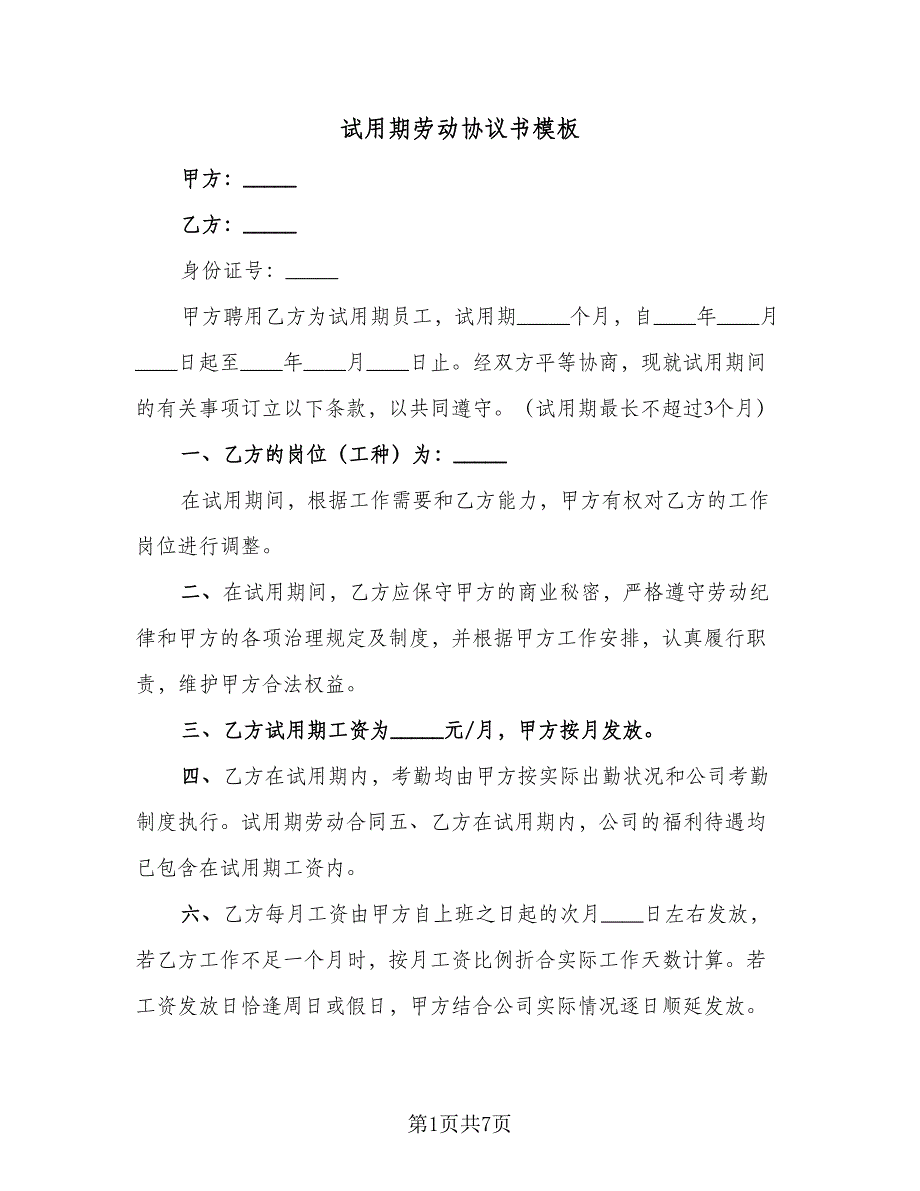 试用期劳动协议书模板
甲方：_____
乙方：_____
身份证号：_____
甲方聘用乙方为试用期员工，试用期_____个月，自____年____月
____日起至____年____月____日止。经双方平等协商，现就试用期间
的有关事项订立以下条款，以共同遵守。（试用期最长不超过3个月）
一、乙方的岗位（工种）为：_____
在试用期间，根据工作需要和乙方能力，甲方有权对乙方的工作
岗位进行调整。
二、在试用期间，乙方应保守甲方的商业秘密，严格遵守劳动纪
律和甲方的各项治理规定及制度，并根据甲方工作安排，认真履行职
责，维护甲方合法权益。
三、乙方试用期工资为_____元/月，甲方按月发放。
四、乙方在试用期内，考勤均由甲方按实际出勤状况和公司考勤
制度执行。试用期劳动合同五、乙方在试用期内，公司的福利待遇均
已包含在试用期工资内。
六、乙方每月工资由甲方自上班之日起的次月____日左右发放，
若乙方工作不足一个月时，按月工资比例折合实际工作天数计算。若
工资发放日恰逢周日或假日，甲方结合公司实际情况逐日顺延发放。
第1页共7页